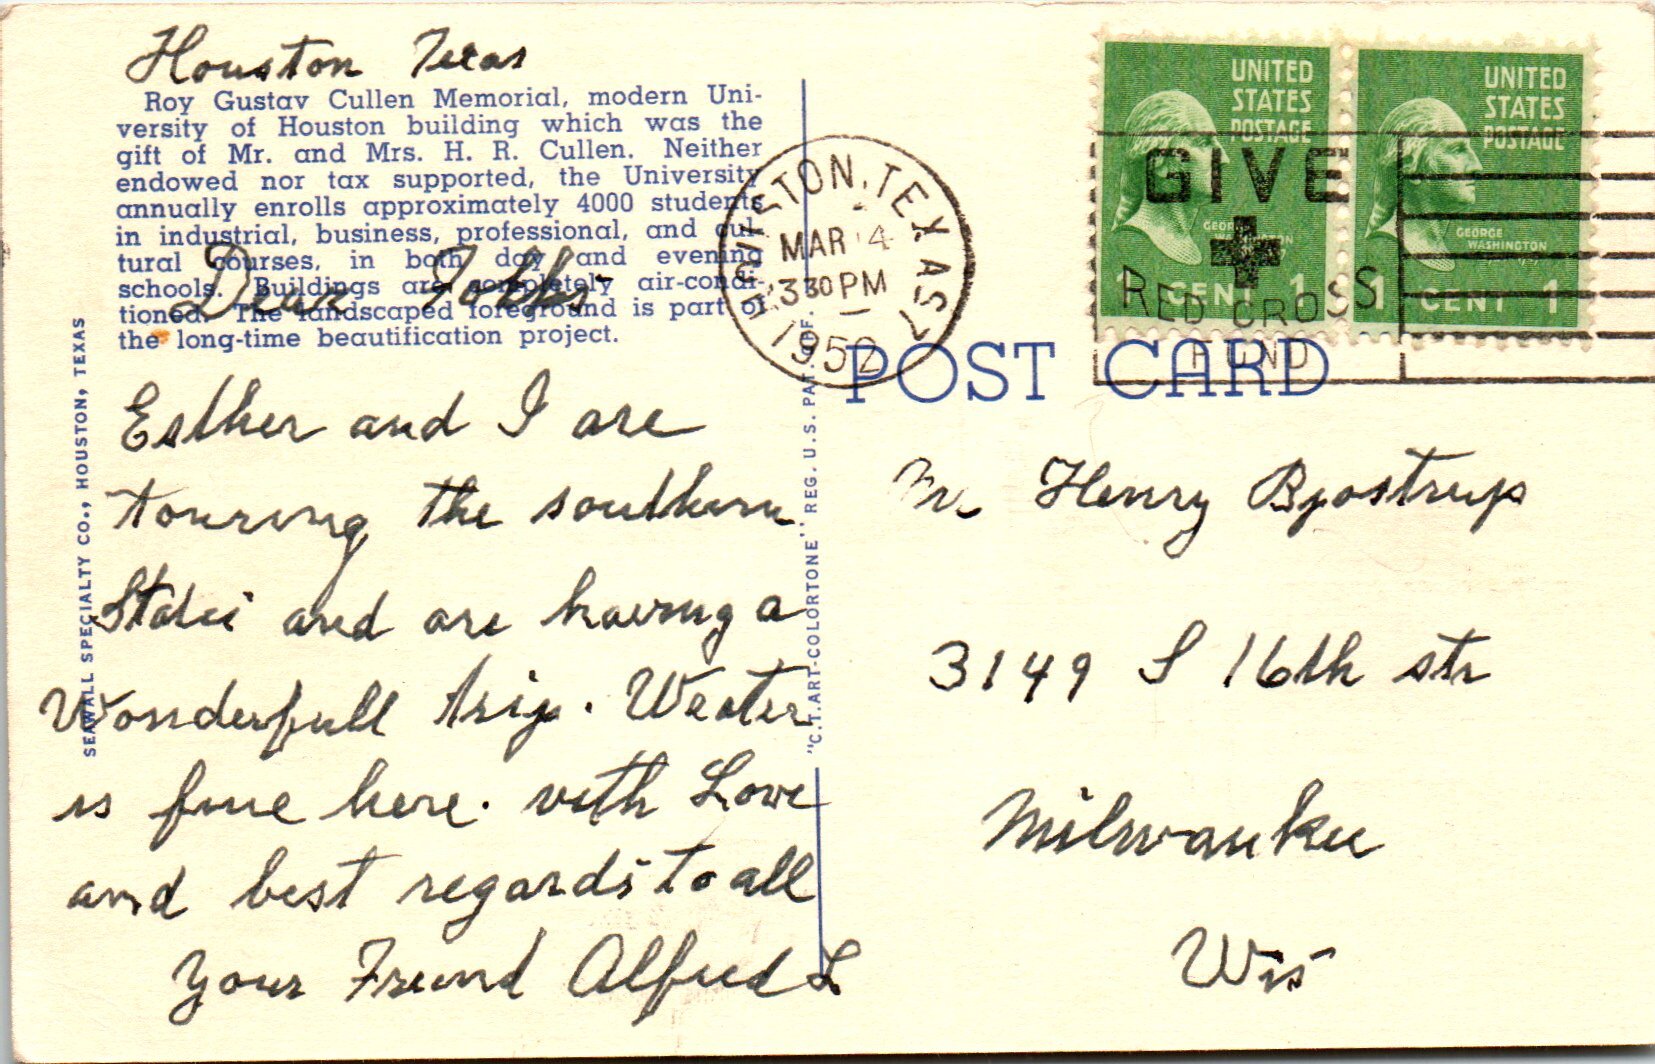 Houston Texas
Roy Gustav Cullen Memorial, modern Uni-
versity of Houston building which was the
gift of Mr. and Mrs. H. R. Cullen. Neither
endowed nor tax supported, the University
annually enrolls approximately 4000 students
in industrial, business, professional, and cul-
tural courses, in both day and evening
schools. Buildings are completely air-condi-
tioned. The landscaped foreground is part of
the long-time beautification project.
Dear Folks
Esther and I are
touring the southern
States and are having a
Wonderfull trip. Weater
is fine here. with Love
and best regards to all
Your Friend Alfred L
SEAWALL SPECIALTY CO., HOUSTON, TEXAS
"C.T.ART-COLORTONE" REG. U.S. PAT. OFF.
TEXAS
MAR 4
330PM
1952
GIVE
RED CROSS
FUND
UNITED
STATES
POSTAGE
GEORGE
WASHINGTON
1 CENT 1
UNITED
STATES
POSTAGE
GEORGE
WASHINGTON
1 CENT 1
POST CARD
Mr Henry Bjostrup
3149 S 16th str
Milwaukee
Wis